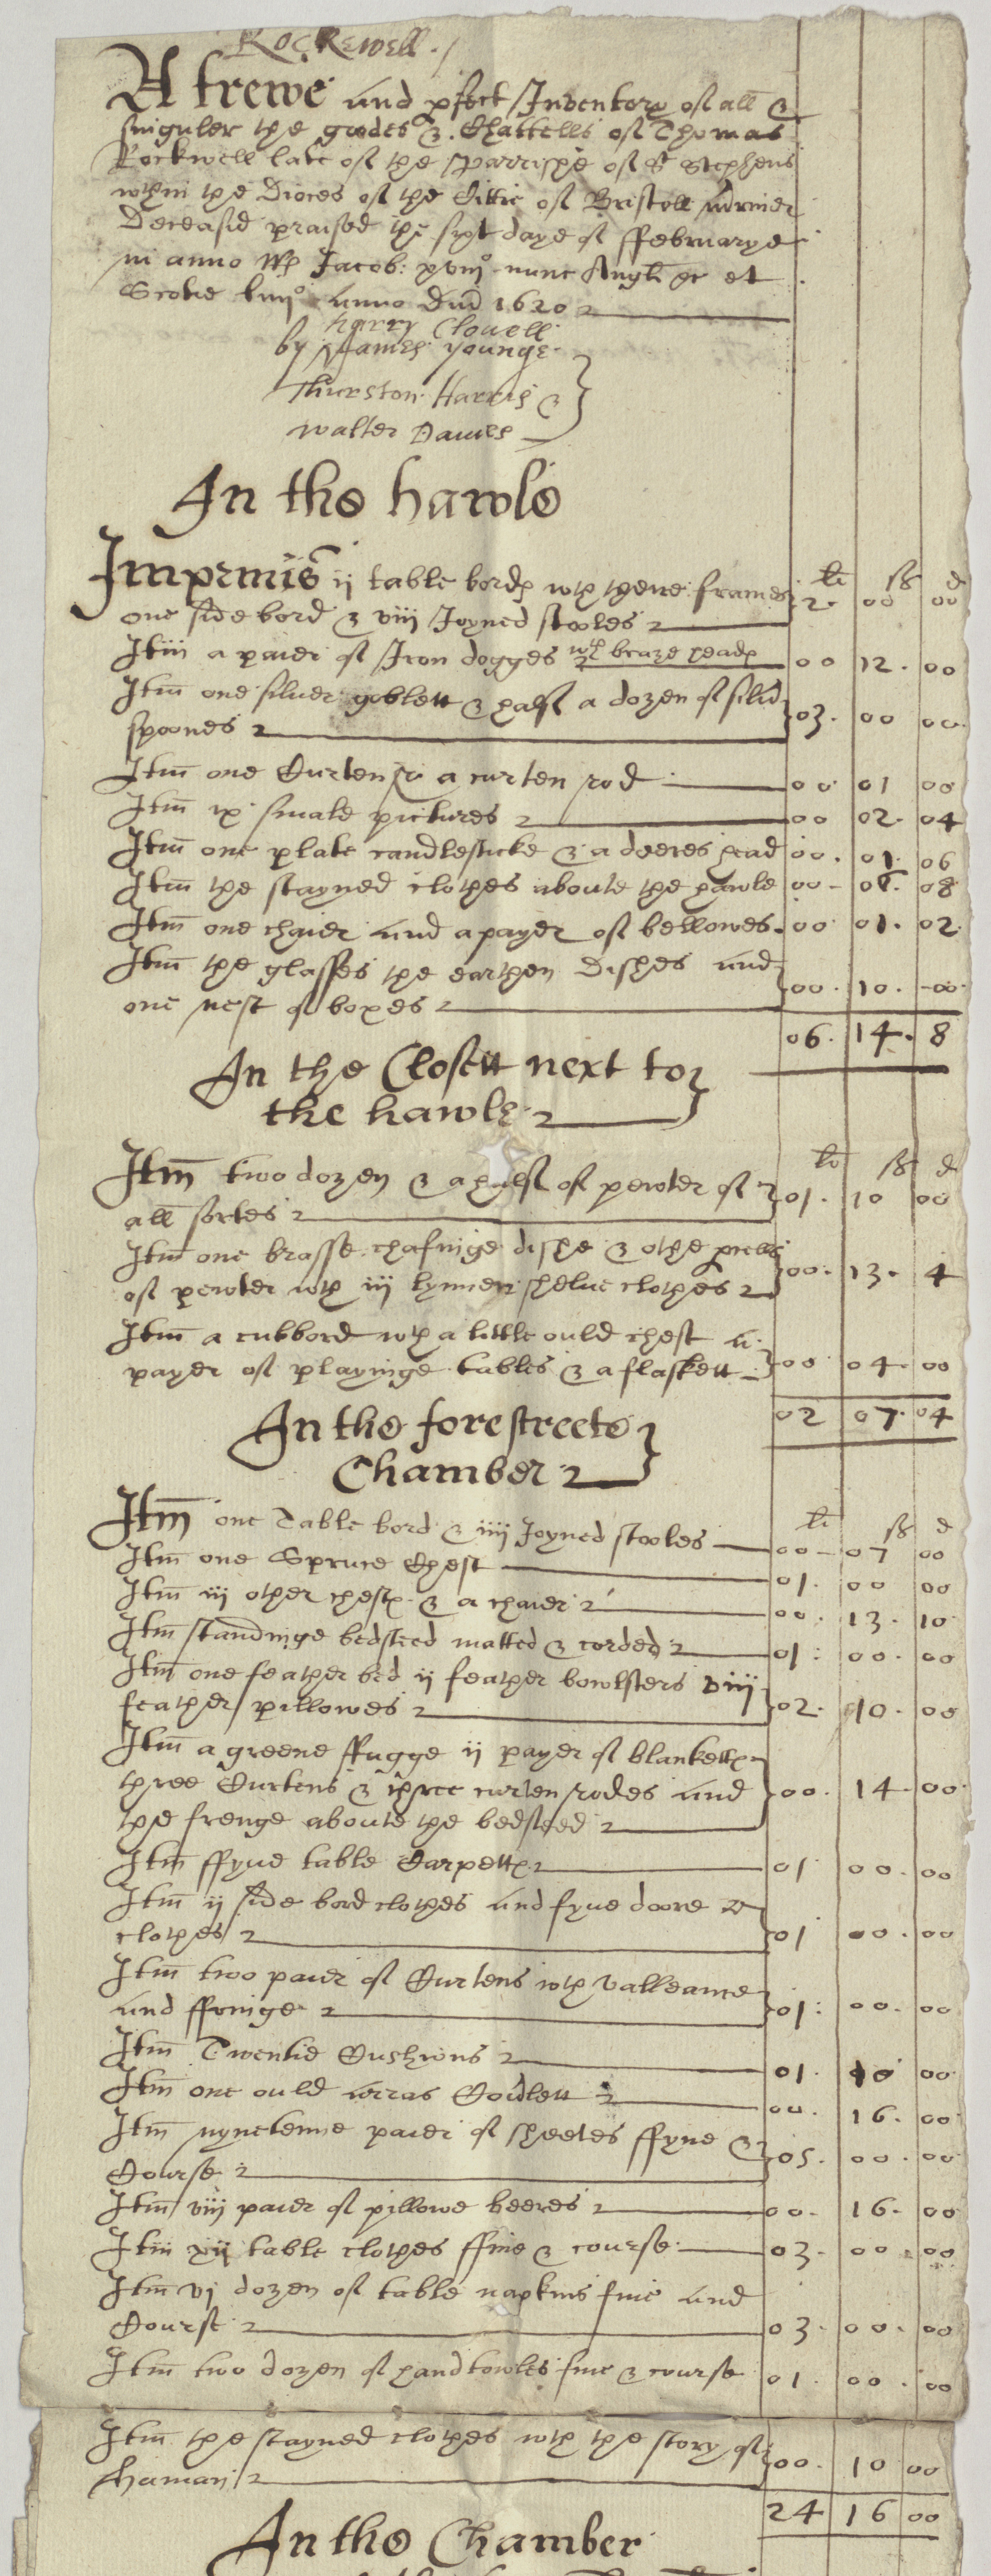 Rockewell.
A trewe and pfect Inventory of all &
singuler the goodes & Chattells of Thomas
Rockwell late of the Parrishe of St Stephens
wthin the Dioces of the Cittie of Bristoll
Deceased praised the sixt daye of ffebruarye
in anno Rs Jacob: xviijo nunc Angl &c et
Scotie liiijo anno Dni 1620
harry Clovell
by James younge
Thurston Harris &
walter Davies
In the hawle
li s d
Imprmis ij table bords wth there frames
one side bord & viii Joyned stooles 2 00 00
Itm a paier of Iron dogges wth braze heads 00 12 00
Itm one silver goblett & half a dozen of silv
spoones 03 00 00
Itm one Curten & a curten rod 00 01 00
Itm ix smale pictures 00 02 04
Itm one plate candlesticke & a deeres head 00 01 06
Itm the stayned clothes aboute the hawle 00 06 08
Itm one chaier and a payer of bellowes 00 01 02
Itm the glasses the earthen Dishes and
one nest of boxes 00 10 00
06 14 8
In the Closett next to
the hawle
li s d
Itm two dozen & a half of pewter of
all sortes 01 10 00
Itm one brasse chafinge dishe & othe peells
of pewter wth iij lynnen shelve clothes 00 13 4
Itm a cubbord wth a little ould chest a
payer of playinge tables & a flaskett 00 04 00
02 07 04
In the forestreete
Chamber
li s d
Itm one Table bord & iiij Joyned stooles 00 07 00
Itm one Spruce Chest 01 00 00
Itm iij other chests & a chaier 00 13 10
Itm standinge bedsteed matted & corded 01 00 00
Itm one feather bed ij feather bowlsters viij
feather pillowes 02 10 00
Itm a greene Rugge ij payer of blanketts
three Curtens & three curten rodes and
the frenge aboute the bedsteed 00 14 00
Itm ffyve table Carpetts 01 00 00
Itm ij side bord clothes and fyve doore
clothes 01 00 00
Itm two paier of Curtens wth valleance
and ffringe 01 00 00
Itm Twentie Cushions 01 10 00
Itm one ould arras Coverlett 00 16 00
Itm nynetenne paier of sheetes ffyne &
Course 05 00 00
Itm viij paier of pillowe beeres 00 16 00
Itm xij table clothes ffine & course 03 00 00
Itm vj dozen of table napkins fine and
Course 03 00 00
Itm two dozen of handtowles fine & course 01 00 00
Itm the stayned clothes wth the story of
haman 00 10 00
24 16 00
In the Chamber